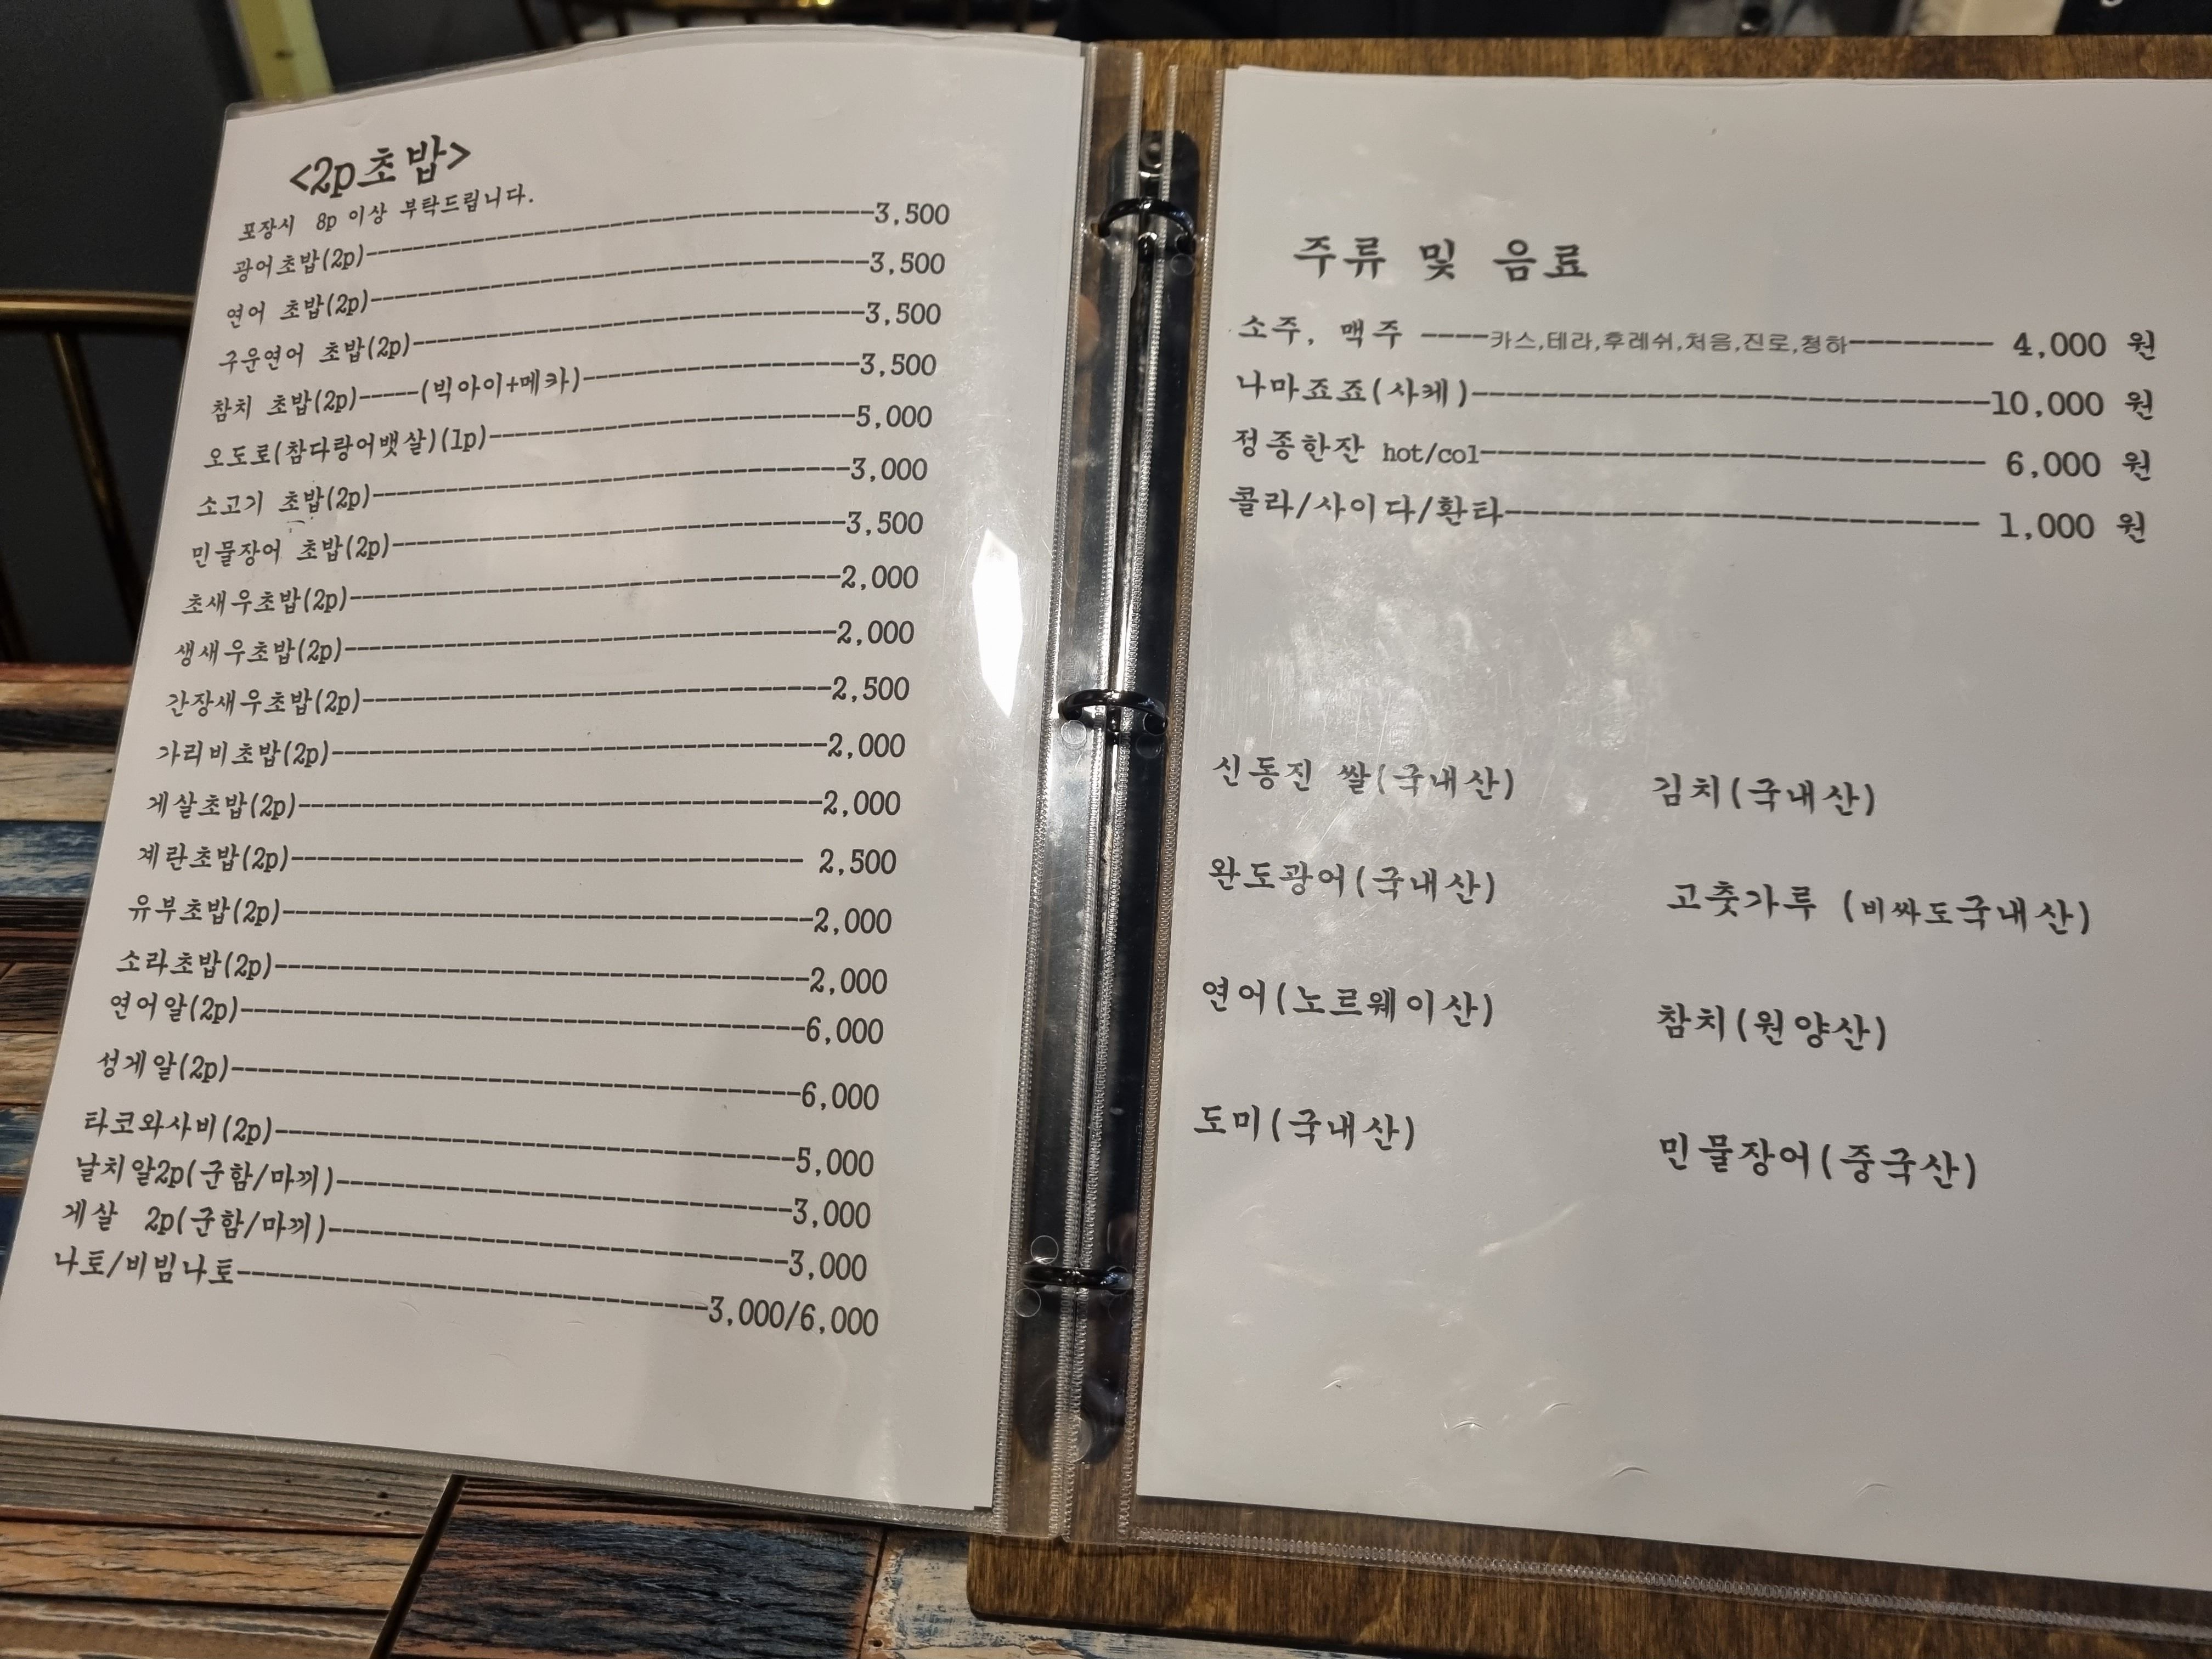 <2p초밥>
포장시 8p 이상 부탁드립니다.
광어초밥(2p)---3,500
연어 초밥(2p)---3,500
구운연어 초밥(2p)---3,500
참치 초밥(2p)-----(빅아이+메카)---3,500
오도로(참다랑어뱃살)(1p)---5,000
소고기 초밥(2p)---3,000
민물장어 초밥(2p)---3,500
초새우초밥(2p)---2,000
생새우초밥(2p)---2,000
간장새우초밥(2p)---2,500
가리비초밥(2p)---2,000
게살초밥(2p)---2,000
계란초밥(2p)--- 2,500
유부초밥(2p)---2,000
소라초밥(2p)---2,000
연어알(2p)---6,000
성게알(2p)---6,000
타코와사비(2p)---5,000
날치알2p(군함/마끼)---3,000
게살 2p(군함/마끼)---3,000
나토/비빔나토---3,000/6,000
주류 및 음료
소주, 맥주 ----카스,테라,후레쉬,처음,진로,청하--- 4,000 원
나마죠죠(사케)---10,000 원
정종한잔 hot/col--- 6,000 원
콜라/사이다/환타--- 1,000 원
신동진 쌀(국내산) 김치(국내산)
완도광어(국내산) 고춧가루 (비싸도국내산)
연어(노르웨이산) 참치(원양산)
도미(국내산) 민물장어(중국산)